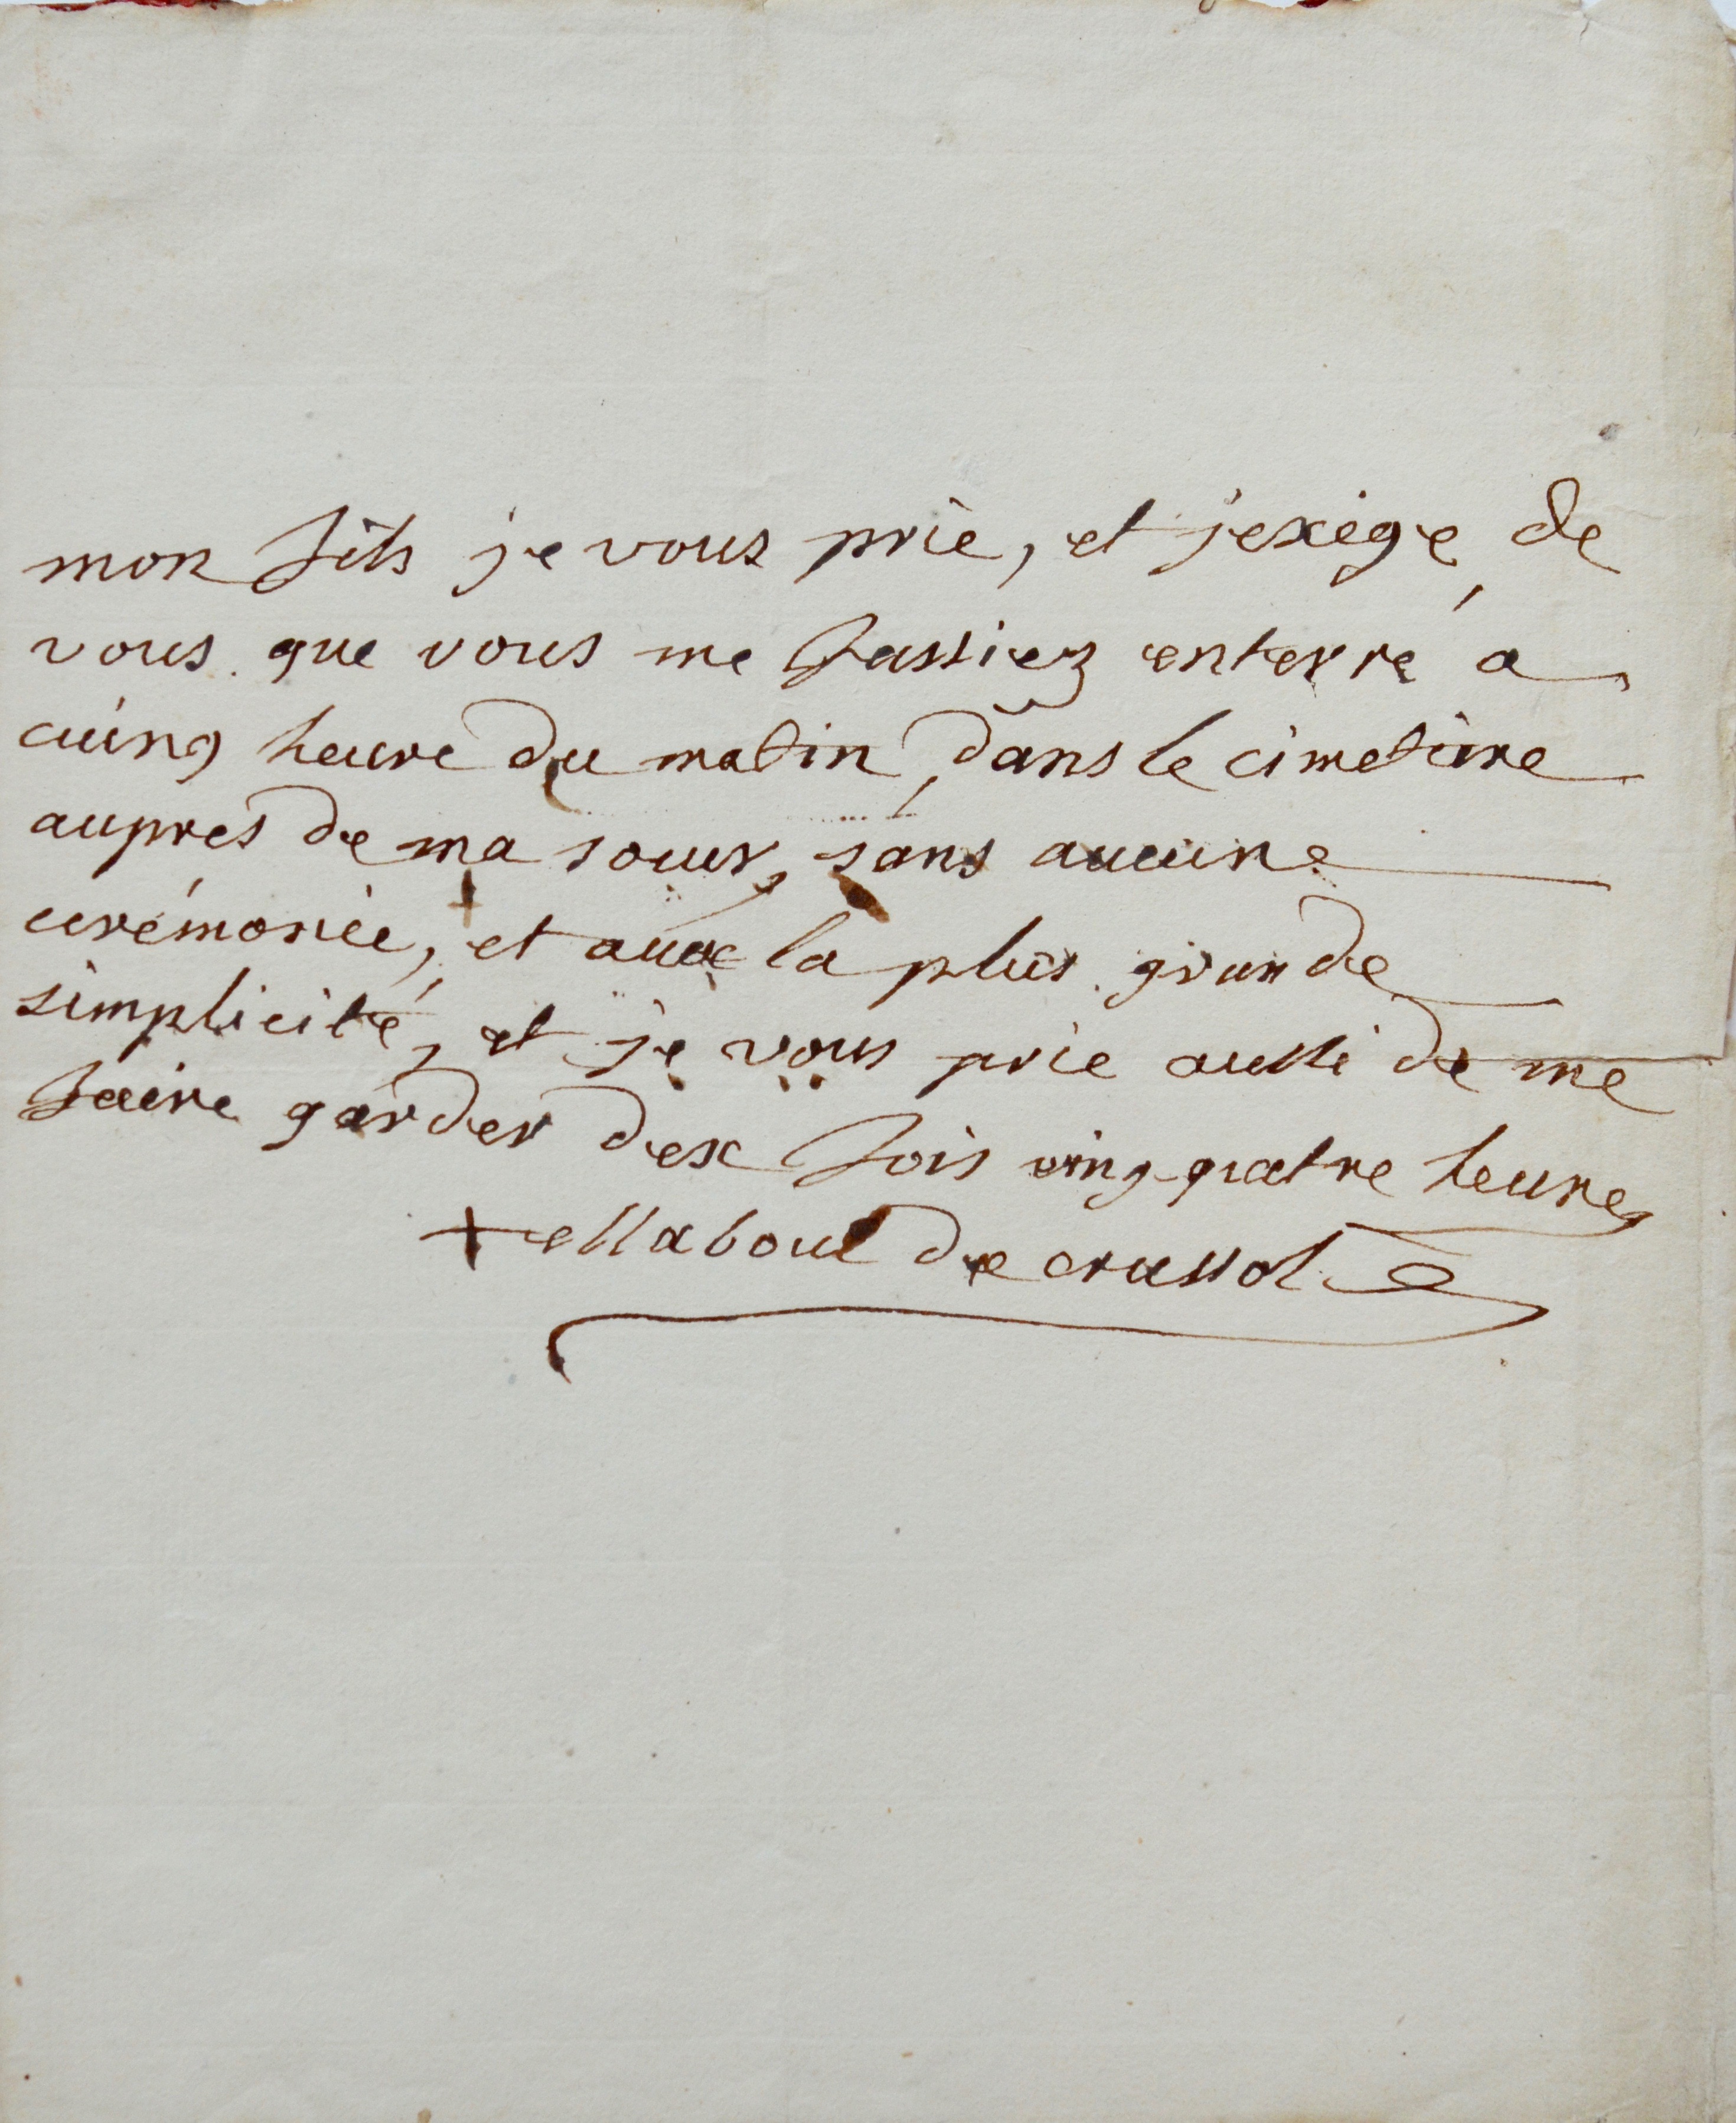 mon fils je vous prie, et j'exige, de
vous que vous me fassiez enterré a
cuinq heure du matin, dans le cimetiere
aupres de ma sœur, sans aucune
cerémonie, et avec la plus grande
simplicité, et je vous prie aussi de me
faire garder dex fois ving-quatre heures
de crussol